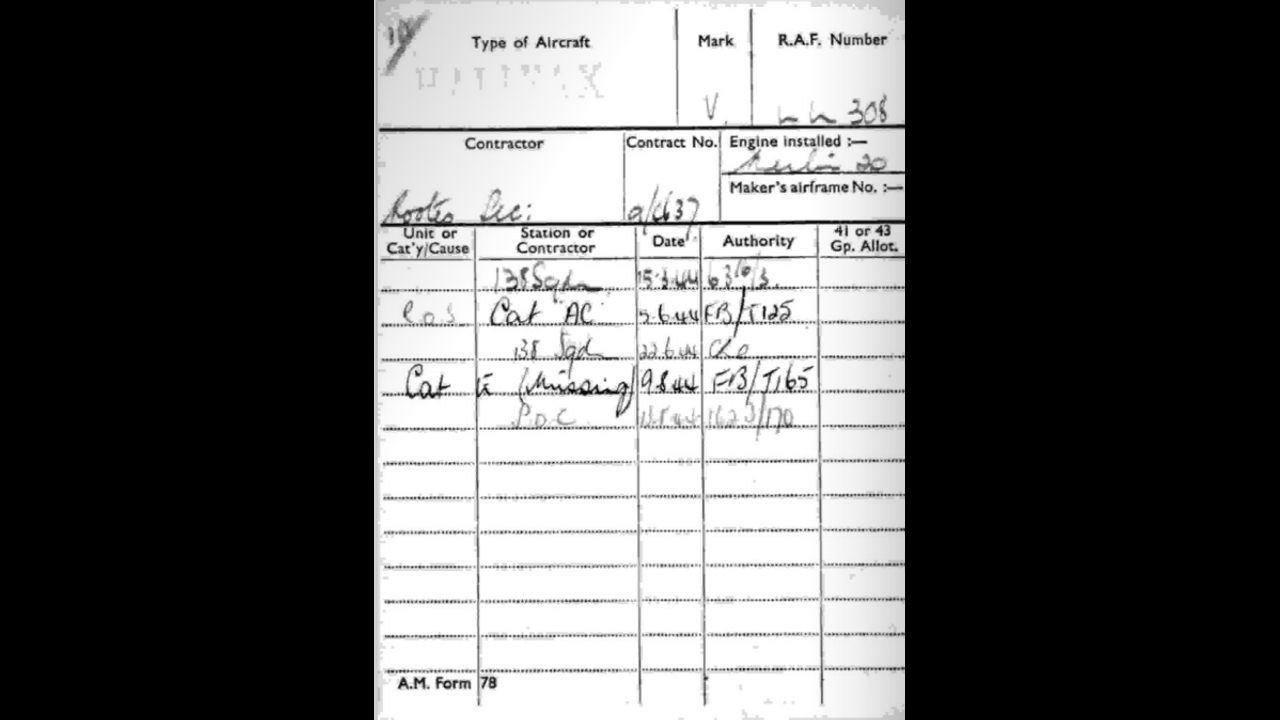 Type of Aircraft Mark R.A.F. Number
HALIFAX V. LL 308
Contractor Contract No. Engine installed :—
Merlin 20
Maker's airframe No. :—
Rootes Sec:
Unit or Cat'y/Cause Station or Contractor Date Authority 41 or 43 Gp. Allot.
138 Sqdn 15.3.44
Cat AC 5.6.44 FB/T125
138 Sqdn 22.6.44
Cat E (Missing) 9.8.44 FB/T165
S.O.C.
A.M. Form 78